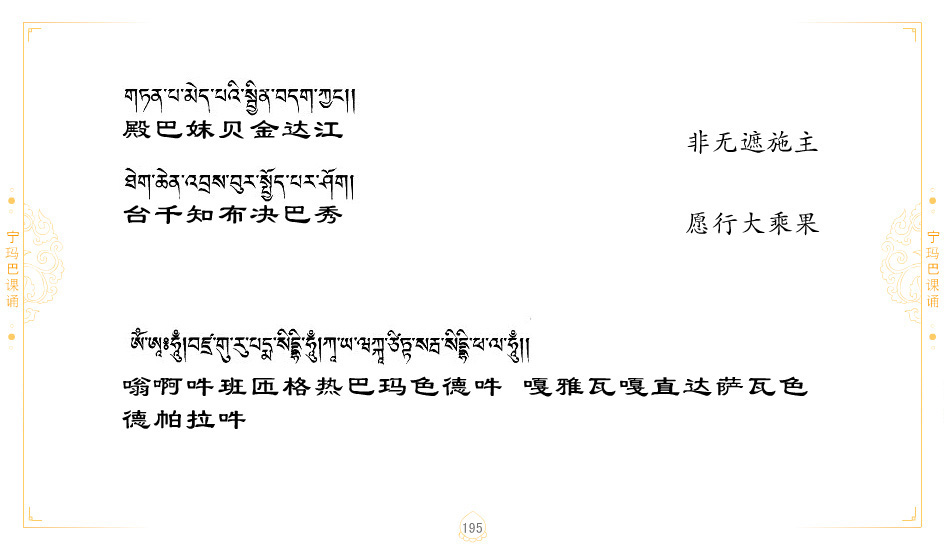 གཏན་པ་མེད་པའི་སྦྱིན་བདག་ཀྱང།།
殿巴妹贝金达江
非无遮施主
ཐེག་ཆེན་འབྲས་བུར་སྤྱོད་པར་ཤོག།
台千知布决巴秀
愿行大乘果
宁玛巴课诵
宁玛巴课诵
嗡啊吽班匝格热巴玛色德吽 嘎雅瓦嘎直达萨瓦色
德帕拉吽
195